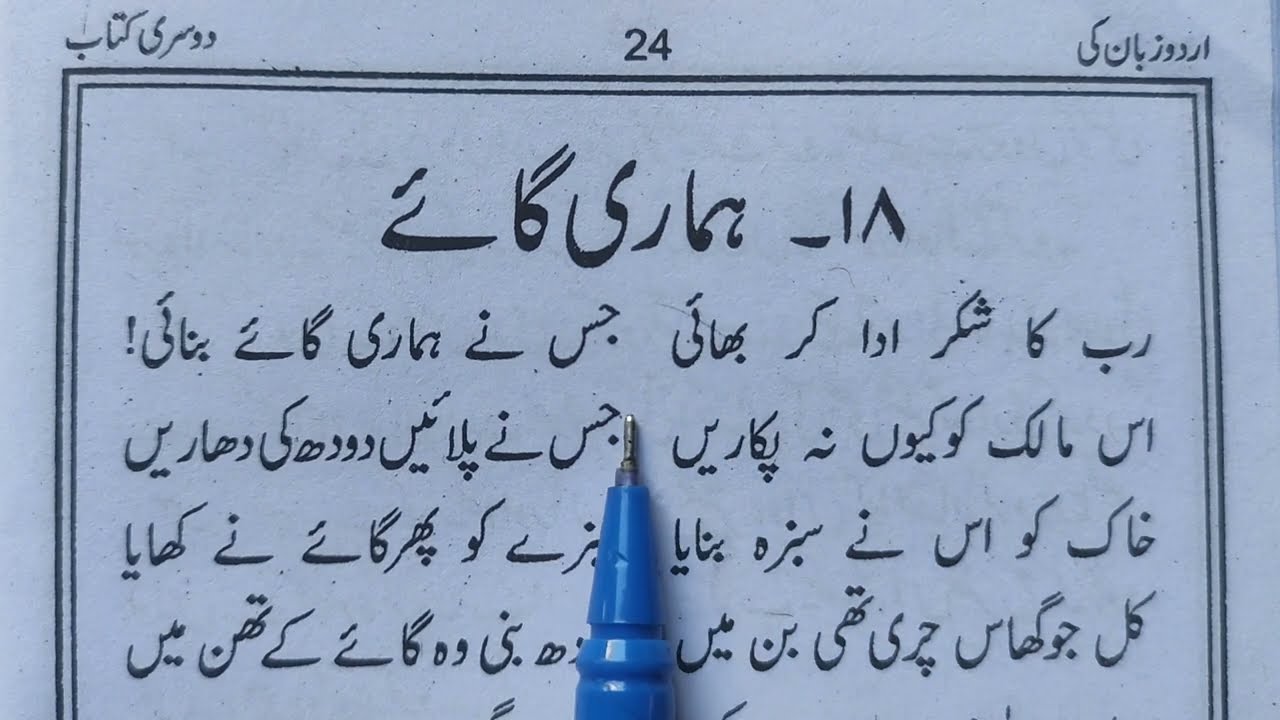 اردو زبان کی 24 دوسری کتاب
۱۸۔ ہماری گائے
رب کا شکر ادا کر بھائی جس نے ہماری گائے بنائی!
اس مالک کو کیوں نہ پکاریں جس نے پلائیں دودھ کی دھاریں
خاک کو اس نے سبزہ بنایا کو پھر گائے نے کھایا
کل جو گھاس چری تھی بن میں بنی وہ گائے کے تھن میں